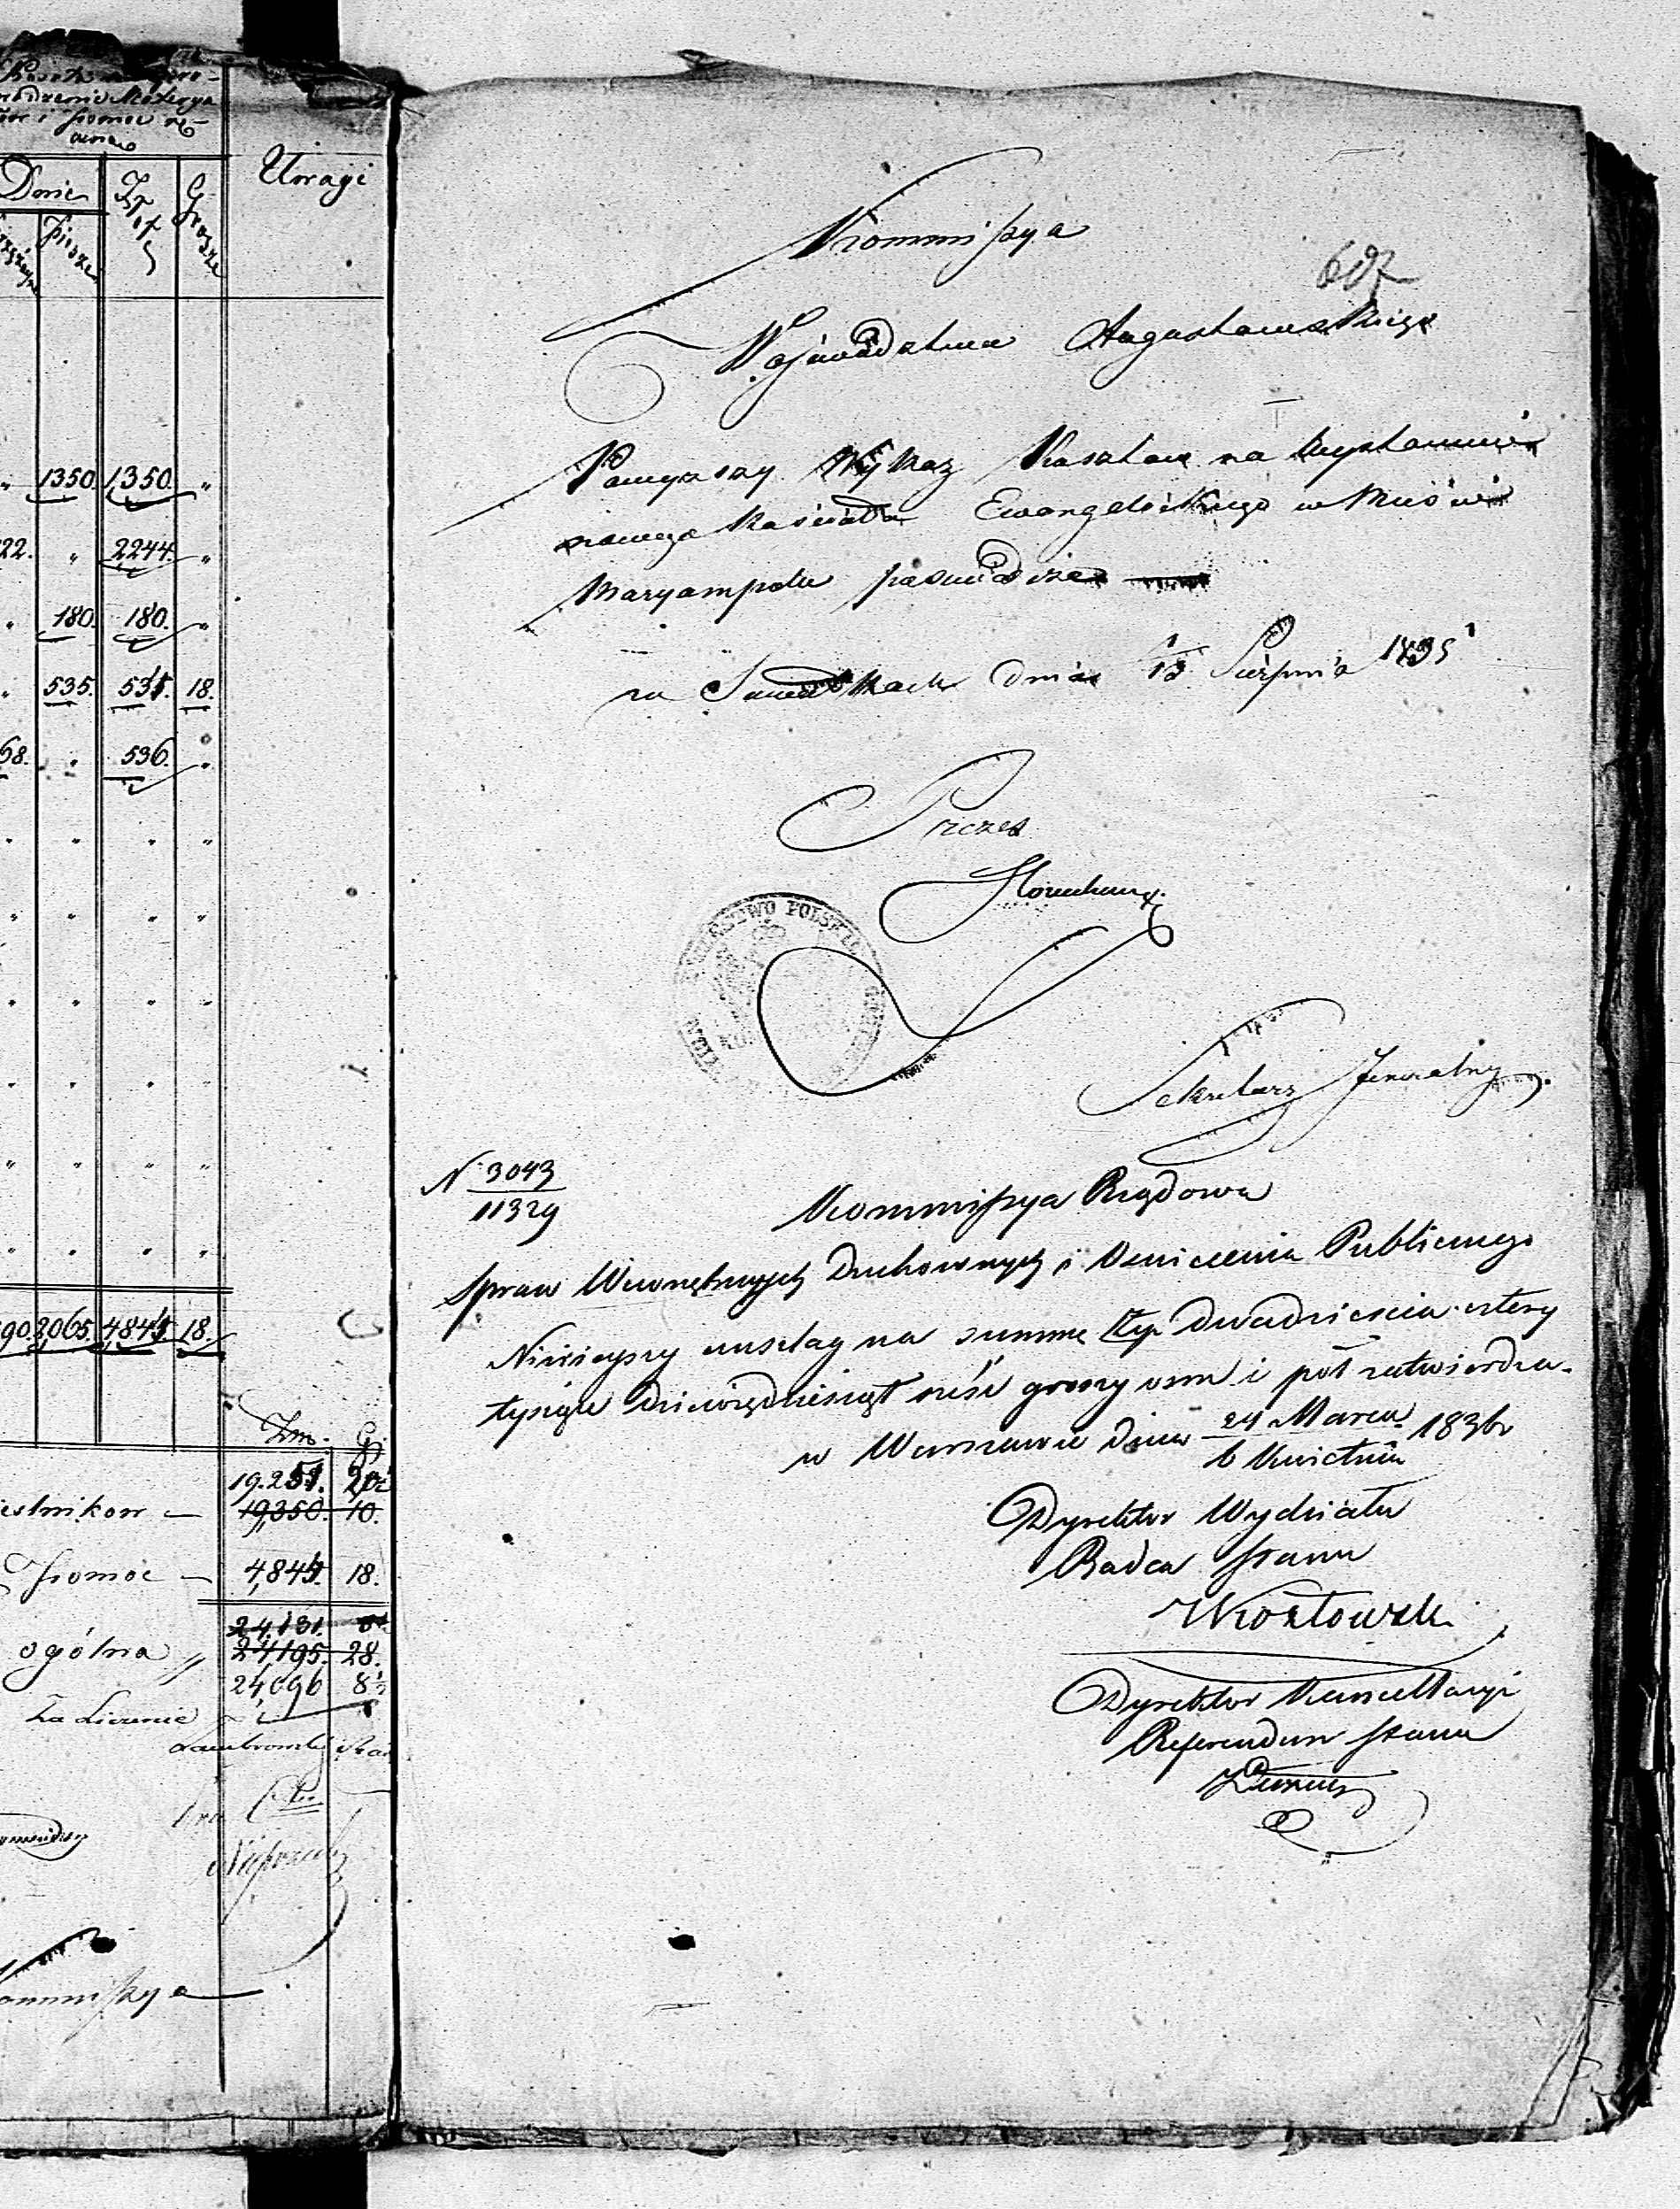 Uwagi
Złote
Grosze
1350. 1,350. "
22. " 2244. "
" 180. 180. "
" 535. 535. 18.
68. " 536. "
90. 2,065. 4,845. 18.
Gr
19.251. 20½
19,350. 10.
Pomoc — 4,845. 18.
24,131.
ogólna " 24,195. 28.
24,096 8½
Kommissya
697
Kommissya
Województwa Augustowskiego
Powyższy Wykaz Kosztow na wystawienie
nowego Kościoła Ewangelickiego w Mieście
Maryampolu poświadcza
w Suwałkach dnia 1/13 Sierpnia 1835
Prezes
KROLESTWO POLSKIE
Sekretarz Jeneralny
N. 3043
11329
Kommissya Rządowa
Spraw Wewnętrznych Duchownych i Oświecenia Publicznego
Ninieyszy anszlag na summę złp. dwadzieścia cztery
tysiące dziewięćdziesiąt sześć groszy osm i pół zatwierdza.
w Warszawie dnia 24 Marca 1836 r
6 Kwietnia
Dyrektor Wydziału
Radca Stanu
Kozłowski
Dyrektor Kancellaryi
Referendarz Stanu